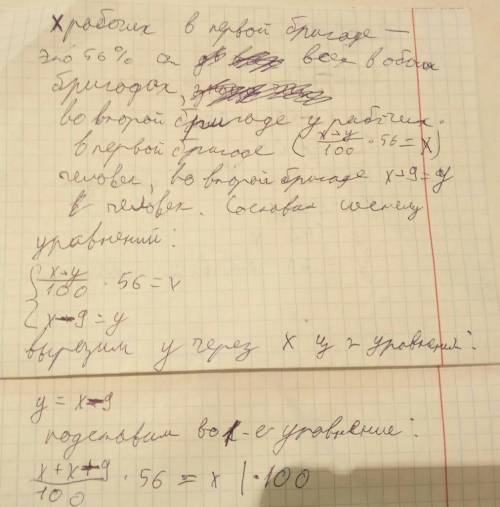 x рабочих в первой бригаде —
это 56% от всех в обоих
бригадах,
во второй бригаде y рабочих.
в первой бригаде ( x+y/100 · 56 = x )
человек, во второй бригаде x-9=y
человек. Составим систему
уравнений:
{ x+y/100 · 56 = x
{ x-9=y
вырезим y через x из 2 уравнения:
y = x-9
подставим во 1-е уравнение:
x+x-9/100 · 56 = x | · 100